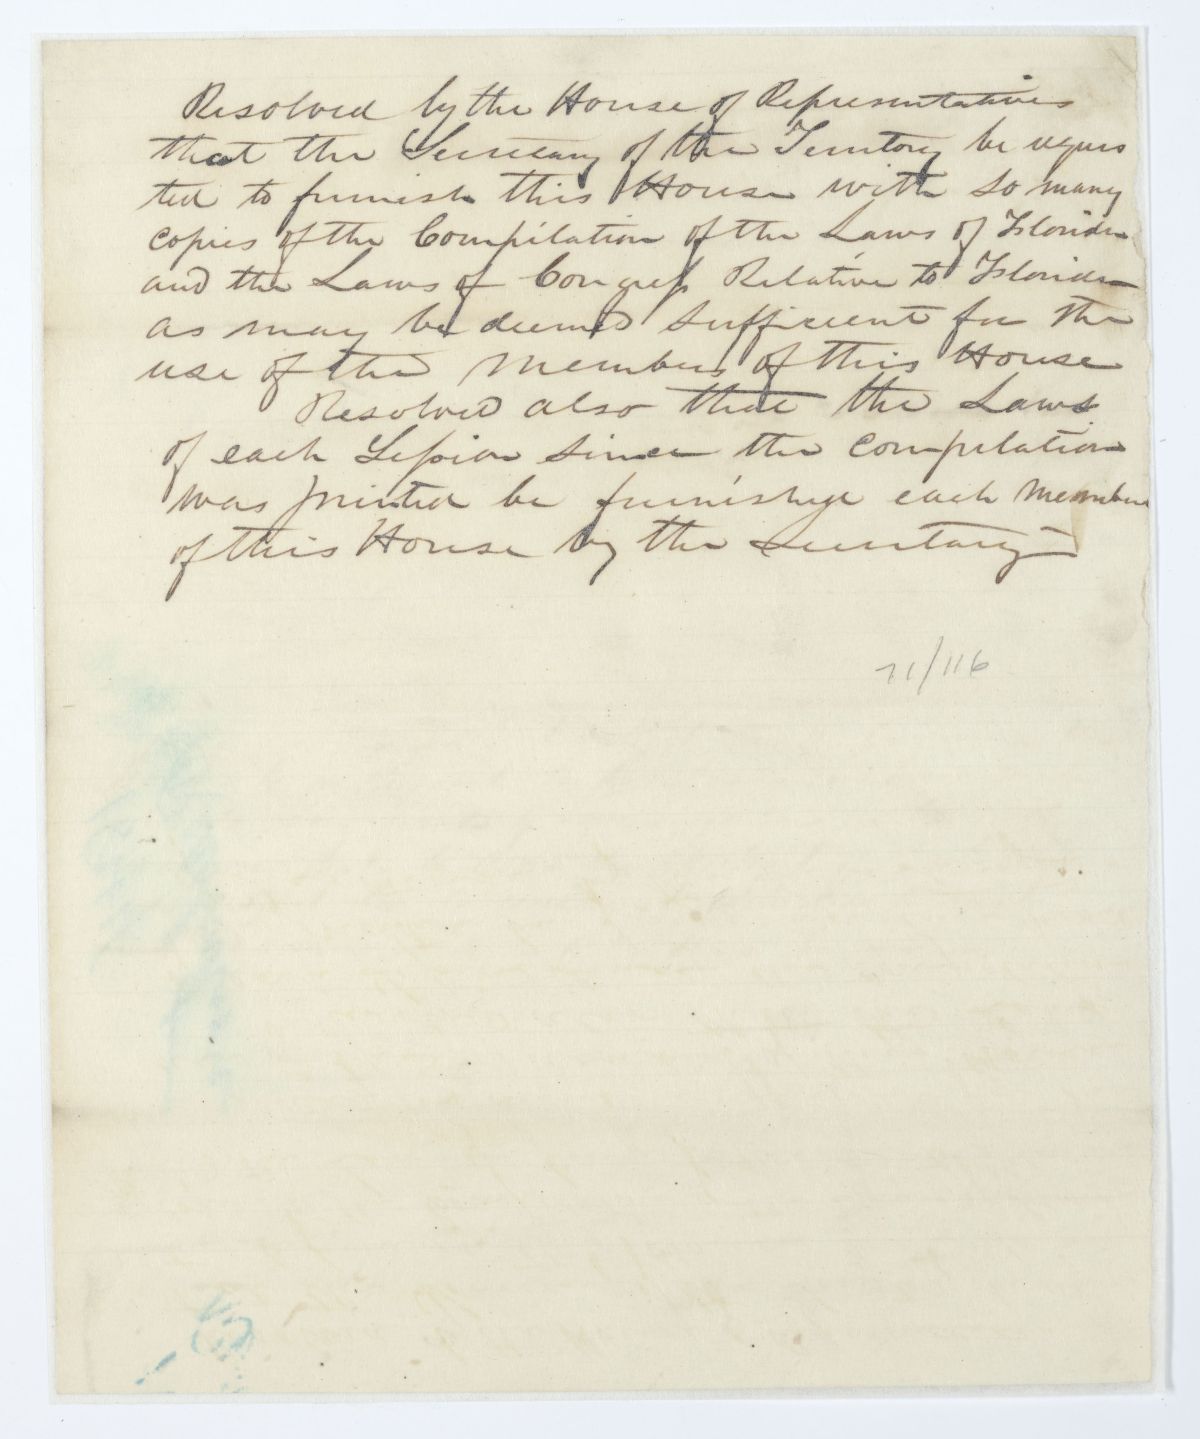 Resolved by the House of Representatives
that the Secretary of the Territory be reques
ted to furnish this House with so many
copies of the Compilation of the Laws of Florida
and the Laws of Congress Relative to Florida
as may be deemed sufficient for the
use of the Members of this House
Resolved also that the Laws
of each Session since the compilation
was printed be furnished each Member
of this House by the Secretary
71/116